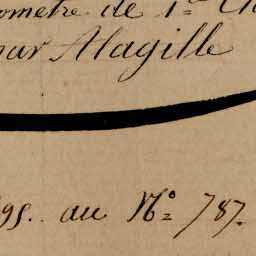 omètre de 1re
par Alagille
95. au No 787.